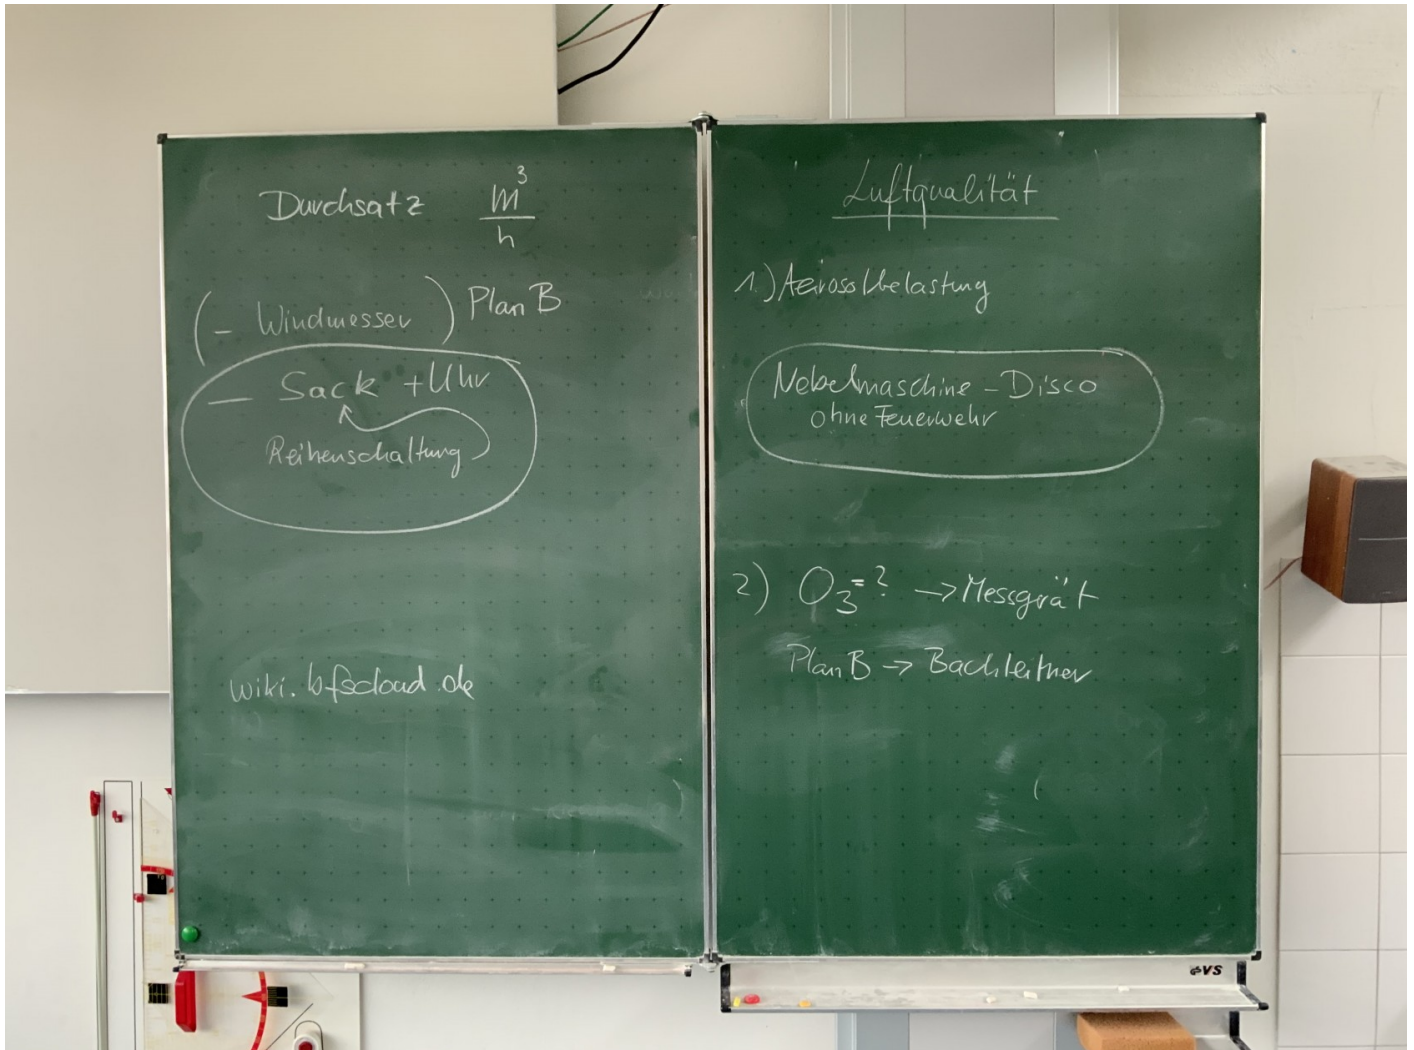 Durchsatz m³/h
(- Windmesser) Plan B
- Sack + Uhr
Reihenschaltung
wiki.bfscloud.de
Luftqualität
1.) Aerosolbelastung
Nebelmaschine - Disco
ohne Feuerwehr
2) O₃ = ? → Messgerät
Plan B → Bachleitner
VS